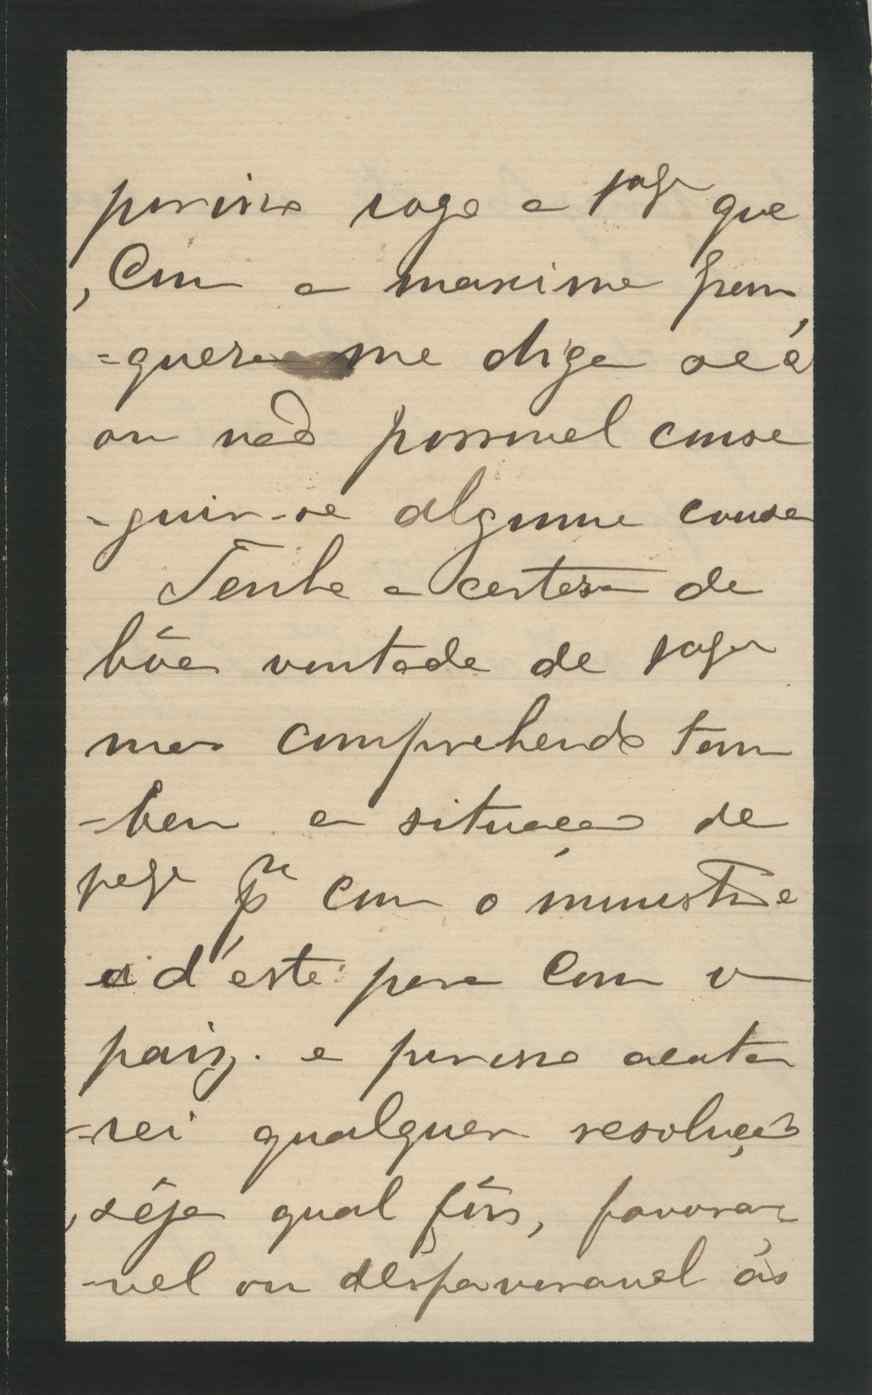 porisso rogo a que
, Com a maxima fran
=quesa me diga se é
ou não possivel conse
-guir-se alguma cousa
Tenho a certesa da
bôa vontade de
mas comprehendo tam
-bem a situacao de
p.ª com o ministro e
a d'este para com o
paiz. e porisso acata
-rei qualquer resolução
, sêja qual fôr, favora
-vel ou desfavoravel ás